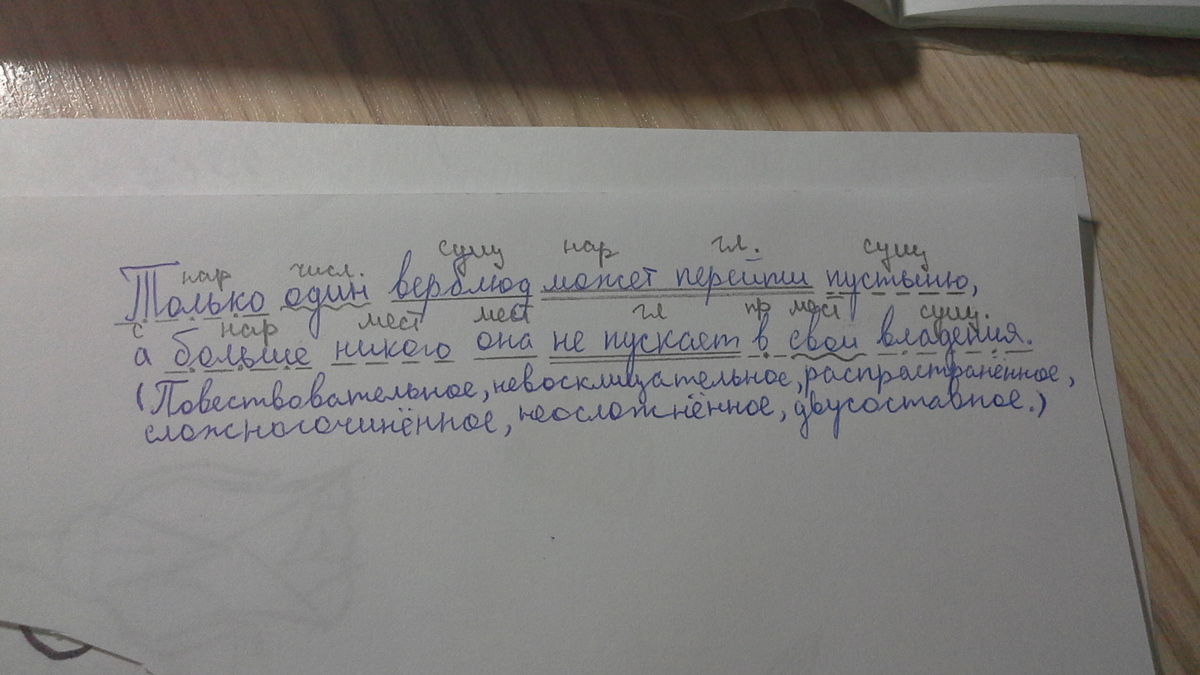 сущ нар гл. сущ
нар числ.
Только один верблюд может перейти пустыню,
с нар мест мест гл пр мест сущ.
а больше никого она не пускает в свои владения.
(Повествовательное, невосклицательное, распространённое,
сложносочинённое, неосложнённое, двусоставное.)